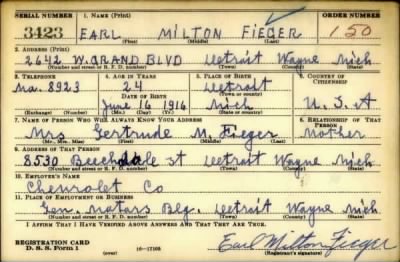 SERIAL NUMBER 1. Name (Print) ORDER NUMBER
3423 EARL MILTON FIEGER 150
(First) (Middle) (Last)
2. Address (Print)
2642 W. GRAND BLVD Detroit Wayne Mich
(Number and street or R. F. D. number) (Town) (County) (State)
3. Telephone 4. Age in Years 5. Place of Birth 6. Country of Citizenship
Ma. 8923 24 Detroit
Date of Birth (Town or county)
June 16 1916 Mich U. S. A
(Exchange) (Number) (Mo.) (Day) (Yr.) (State or country)
7. Name of Person Who Will Always Know Your Address 8. Relationship of That Person
Mrs Gertrude M. Fieger Mother
(Mr., Mrs., Miss) (First) (Middle) (Last)
9. Address of That Person
8530 Beechdale st Detroit Wayne Mich
(Number and street or R. F. D. number) (Town) (County) (State)
10. Employer's Name
Chevrolet Co
11. Place of Employment or Business
Gen. Motors Blg. Detroit Wayne Mich
(Number and street or R. F. D. number) (Town) (County) (State)
I Affirm That I Have Verified Above Answers and That They Are True.
REGISTRATION CARD
D. S. S. Form 1 (over) 16—17105 Earl Milton Fieger
(Registrant's signature)